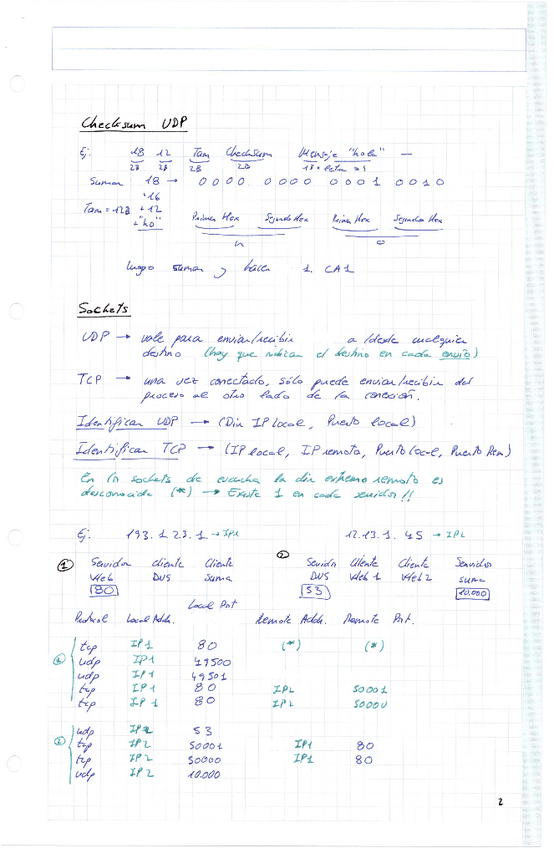 Checksum UDP
Ej: 18 12 Tam Checksum Mensaje "hola" —
2B 2B 2B 2B
Suman 18 → 0000 0000 0001 0010
+16
Tam = 12B +12
+"ho" Primer Hex Segundo Hex Primer Hex Segundo Hex
h o
luego suman y hacen 1. CA1
Sockets
UDP → vale para enviar/recibir a/desde cualquier
destino (hay que indicar el destino en cada envío)
TCP → una vez conectado, sólo puede enviar/recibir del
proceso al otro lado de la conexión.
Identifican UDP → (Dir IP local, Puerto local)
Identifican TCP → (IP local, IP remota, Puerto local, Puerto Rem)
En los sockets de escucha la dir extremo remoto es
desconocida (*) → Existe 1 en cada servidor!!
Ej: 193.1.23.1 → IP1 12.13.1.45 → IP2
① Servidor cliente Cliente ② Servidor Cliente Cliente Servidor
Web DNS suma DNS Web 1 Web 2 suma
80 53 10.000
Protocol Local Addr. Local Port Remote Addr. Remote Port.
① tcp IP1 80 (*) (*)
udp IP1 49500
udp IP1 49501
tcp IP1 80 IP2 50001
tcp IP1 80 IP2 50000
② udp IP2 53
tcp IP2 50001 IP1 80
tcp IP2 50000 IP1 80
udp IP2 10.000
2